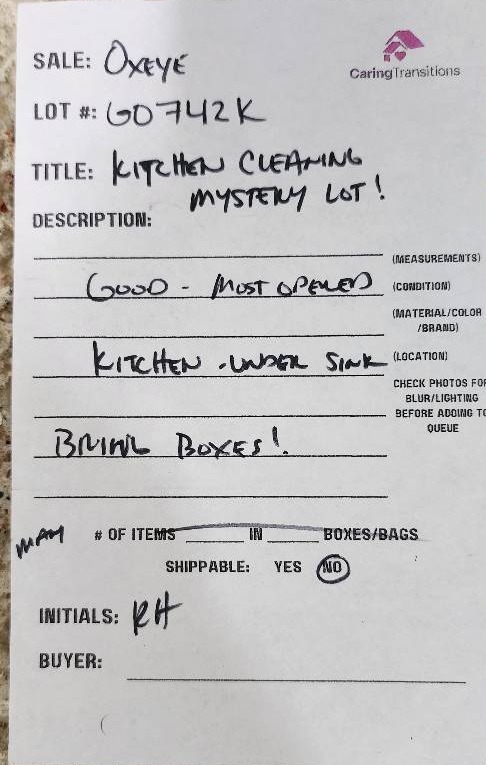 SALE: OXEYE
CaringTransitions
LOT #: GO742K
TITLE: KITCHEN CLEANING
MYSTERY LOT!
DESCRIPTION:
(MEASUREMENTS)
GOOD - MOST OPENED (CONDITION)
(MATERIAL/COLOR
/BRAND)
KITCHEN - UNDER SINK (LOCATION)
CHECK PHOTOS FOR
BLUR/LIGHTING
BEFORE ADDING TO
QUEUE
BRING BOXES!
MANY # OF ITEMS IN BOXES/BAGS
SHIPPABLE: YES NO
INITIALS: RH
BUYER: